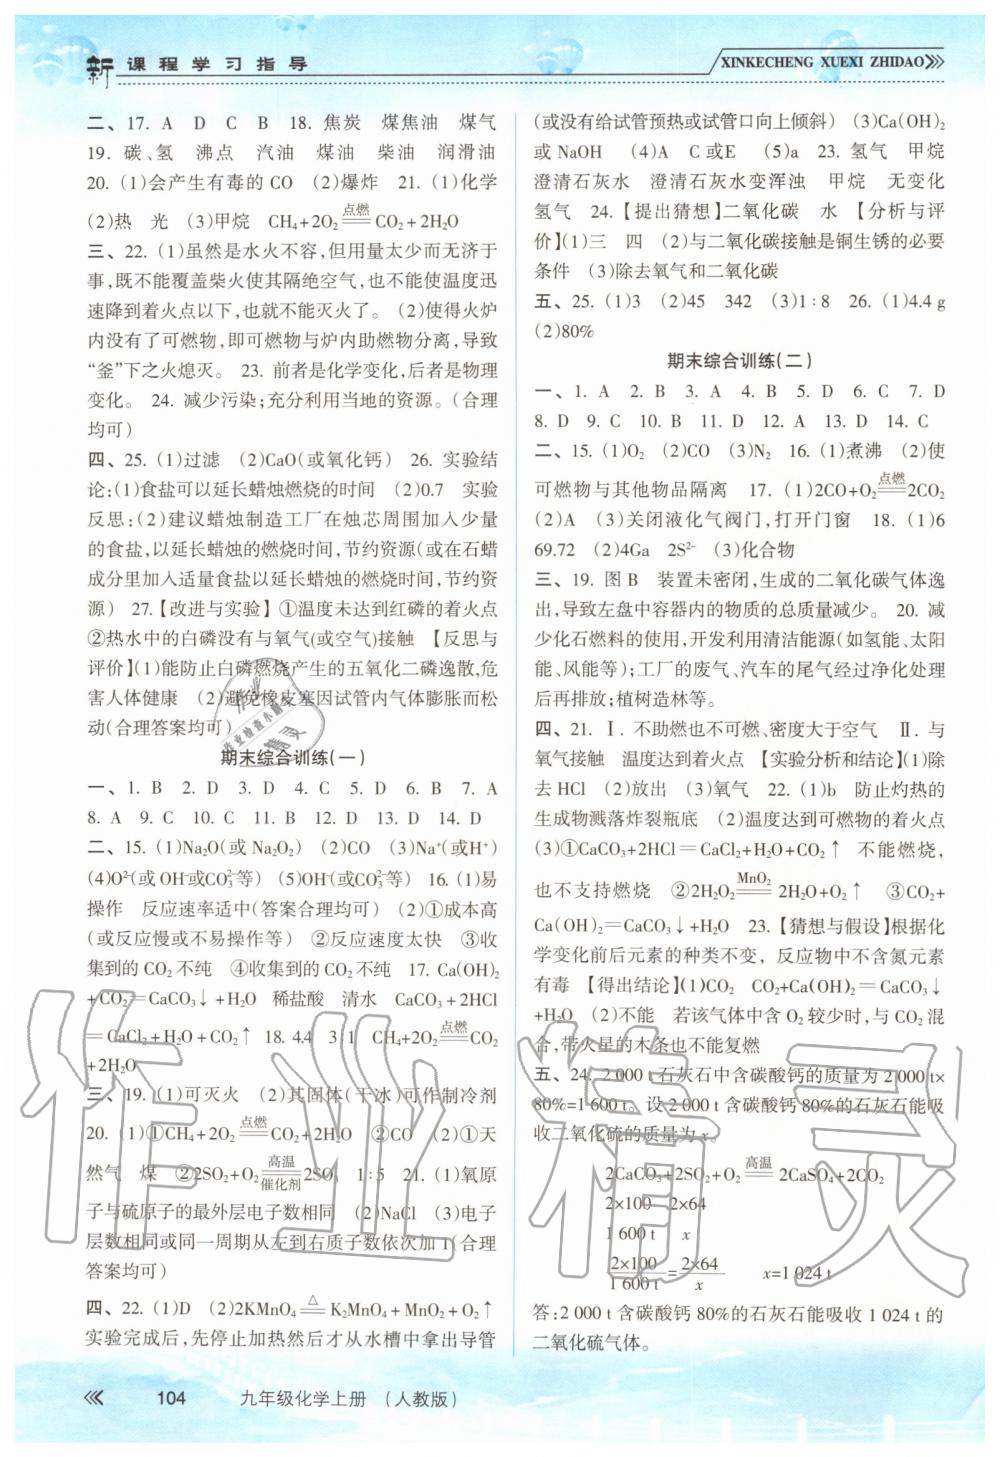 新课程学习指导
XINKECHENG XUEXI ZHIDAO
二、17. A D C B 18. 焦炭 煤焦油 煤气
19. 碳、氢 沸点 汽油 煤油 柴油 润滑油
20. (1)会产生有毒的 CO (2)爆炸 21. (1)化学
(2)热 光 (3)甲烷 CH₄+2O₂ 点燃═ CO₂+2H₂O
三、22. (1)虽然是水火不容,但用量太少而无济于
事,既不能覆盖柴火使其隔绝空气,也不能使温度迅
速降到着火点以下,也就不能灭火了。 (2)使得火炉
内没有了可燃物,即可燃物与炉内助燃物分离,导致
“釜”下之火熄灭。 23. 前者是化学变化,后者是物理
变化。 24. 减少污染;充分利用当地的资源。(合理
均可)
四、25. (1)过滤 (2)CaO(或氧化钙) 26. 实验结
论:(1)食盐可以延长蜡烛燃烧的时间 (2)0.7 实验
反思:(2)建议蜡烛制造工厂在烛芯周围加入少量
的食盐,以延长蜡烛的燃烧时间,节约资源(或在石蜡
成分里加入适量食盐以延长蜡烛的燃烧时间,节约资
源) 27.【改进与实验】①温度未达到红磷的着火点
②热水中的白磷没有与氧气(或空气)接触 【反思与
评价】(1)能防止白磷燃烧产生的五氧化二磷逸散,危
害人体健康 (2)避免橡皮塞因试管内气体膨胀而松
动(合理答案均可)
期末综合训练(一)
一、1. B 2. D 3. D 4. C 5. D 6. B 7. A
8. A 9. C 10. C 11. B 12. D 13. D 14. D
二、15. (1)Na₂O(或 Na₂O₂) (2)CO (3)Na⁺(或H⁺)
(4)O²⁻(或 OH⁻或CO₃²⁻等) (5)OH⁻(或CO₃²⁻等) 16. (1)易
操作 反应速率适中(答案合理均可) (2)①成本高
(或反应慢或不易操作等) ②反应速度太快 ③收
集到的 CO₂ 不纯 ④收集到的 CO₂ 不纯 17. Ca(OH)₂
+CO₂═CaCO₃↓+H₂O 稀盐酸 清水 CaCO₃+2HCl
═CaCl₂+H₂O+CO₂↑ 18. 4.4 3∶1 CH₄+2O₂ 点燃═ CO₂
+2H₂O
三、19. (1)可灭火 (2)其固体(干冰)可作制冷剂
20. (1)①CH₄+2O₂ 点燃═ CO₂+2H₂O ②CO (2)①天
然气 煤 ②2SO₂+O₂ 高温═催化剂 2SO₃ 1∶5 21. (1)氧原
子与硫原子的最外层电子数相同 (2)NaCl (3)电子
层数相同或同一周期从左到右质子数依次加 1(合理
答案均可)
四、22. (1)D (2)2KMnO₄ △═ K₂MnO₄+MnO₂+O₂↑
实验完成后,先停止加热然后才从水槽中拿出导管
(或没有给试管预热或试管口向上倾斜) (3)Ca(OH)₂
或 NaOH (4)A C或E (5)a 23. 氢气 甲烷
澄清石灰水 澄清石灰水变浑浊 甲烷 无变化
氢气 24.【提出猜想】二氧化碳 水 【分析与评
价】(1)三 四 (2)与二氧化碳接触是铜生锈的必要
条件 (3)除去氧气和二氧化碳
五、25. (1)3 (2)45 342 (3)1∶8 26. (1)4.4 g
(2)80%
期末综合训练(二)
一、1. A 2. B 3. A 4. B 5. D 6. C 7. D
8. D 9. C 10. B 11. D 12. A 13. D 14. C
二、15. (1)O₂ (2)CO (3)N₂ 16. (1)煮沸 (2)使
可燃物与其他物品隔离 17. (1)2CO+O₂ 点燃═ 2CO₂
(2)A (3)关闭液化气阀门,打开门窗 18. (1)6
69.72 (2)4Ga 2S²⁻ (3)化合物
三、19. 图 B 装置未密闭,生成的二氧化碳气体逸
出,导致左盘中容器内的物质的总质量减少。 20. 减
少化石燃料的使用,开发利用清洁能源(如氢能、太阳
能、风能等);工厂的废气、汽车的尾气经过净化处理
后再排放;植树造林等。
四、21. Ⅰ. 不助燃也不可燃、密度大于空气 Ⅱ. 与
氧气接触 温度达到着火点 【实验分析和结论】(1)除
去 HCl (2)放出 (3)氧气 22. (1)b 防止灼热的
生成物溅落炸裂瓶底 (2)温度达到可燃物的着火点
(3)①CaCO₃+2HCl═CaCl₂+H₂O+CO₂↑ 不能燃烧,
也不支持燃烧 ②2H₂O₂ MnO₂═ 2H₂O+O₂↑ ③CO₂+
Ca(OH)₂═CaCO₃↓+H₂O 23.【猜想与假设】根据化
学变化前后元素的种类不变,反应物中不含氮元素
有毒 【得出结论】(1)CO₂ CO₂+Ca(OH)₂═CaCO₃↓
+H₂O (2)不能 若该气体中含 O₂ 较少时,与 CO₂ 混
合,带火星的木条也不能复燃
五、24. 2 000 t 石灰石中含碳酸钙的质量为 2 000 t×
80%=1 600 t。设 2 000 t 含碳酸钙 80%的石灰石能吸
收二氧化硫的质量为 x。
2CaCO₃+2SO₂+O₂ 高温═ 2CaSO₄+2CO₂
2×100 2×64
1 600 t x
2×100/1 600 t = 2×64/x x=1 024 t
答:2 000 t 含碳酸钙 80%的石灰石能吸收 1 024 t 的
二氧化硫气体。
104 九年级化学上册 (人教版)
作业精灵